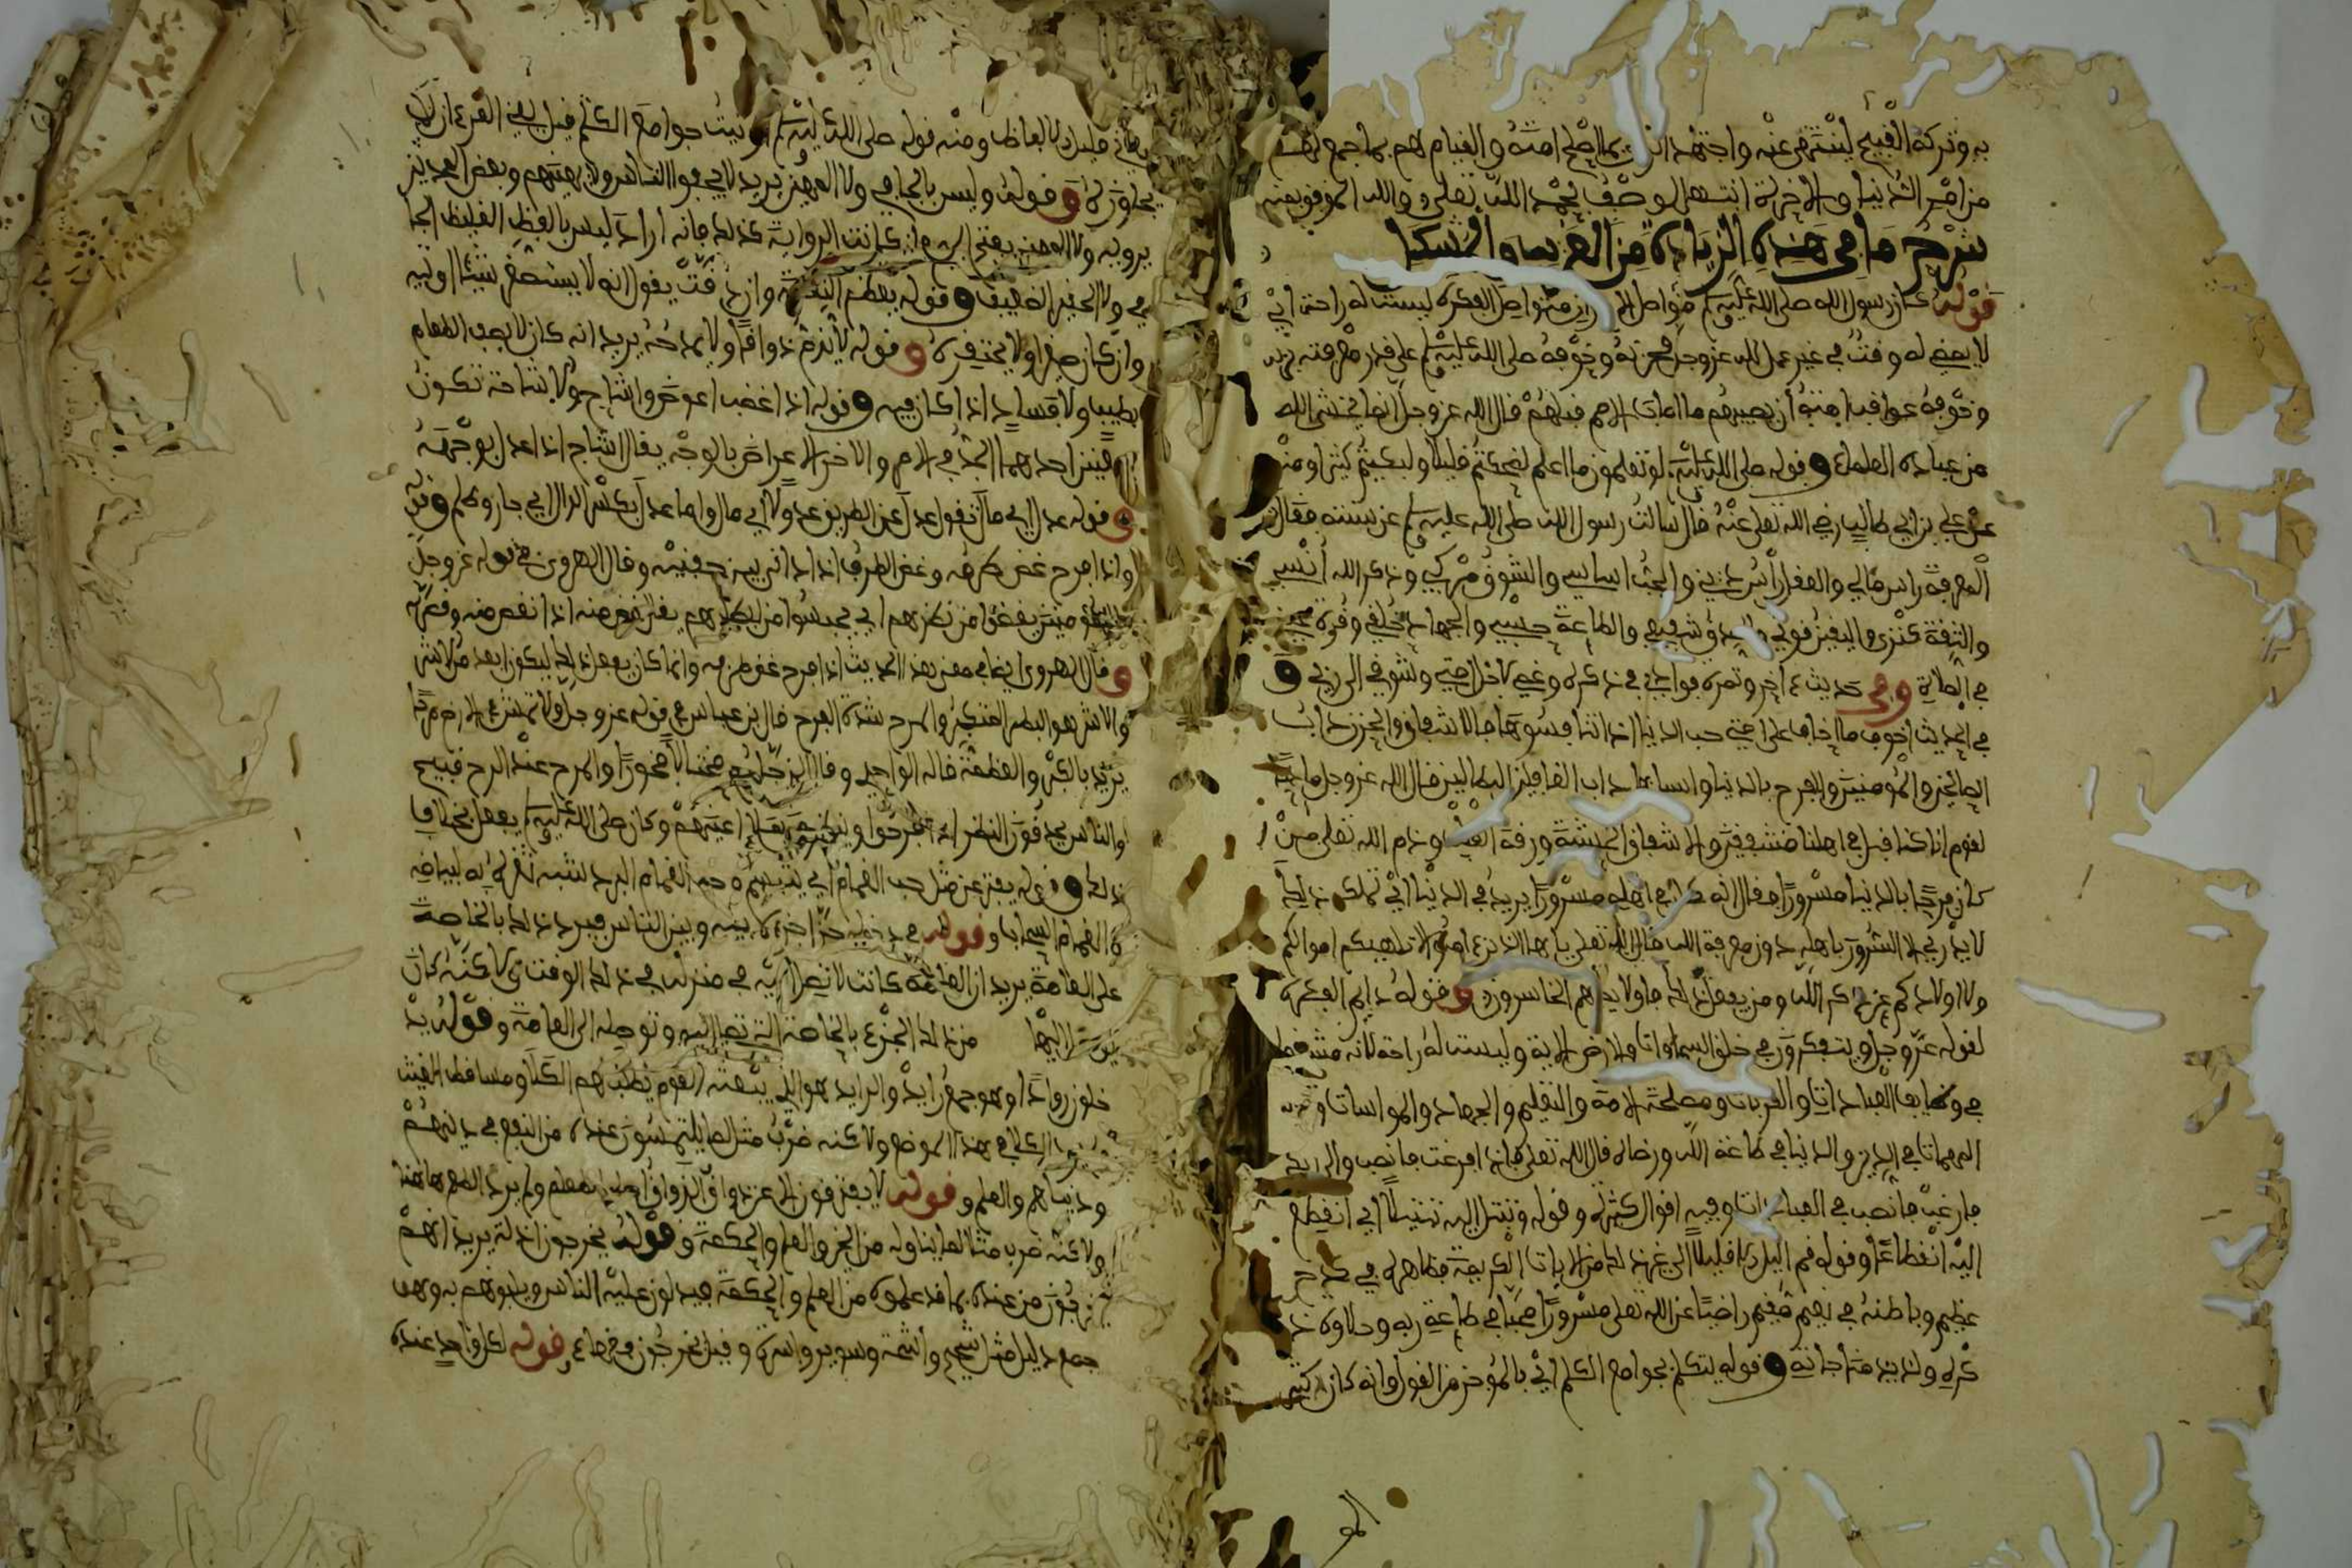 به وتركه القبيح لينتهى عنه واجتهاد الراي بما اصلح امته والقيام لهم بما جمع لهم
من امر الدنيا والاخرة انتهى الوصف بحمد الله تعلى والله الموفق بمنه
شرح ما في هذه الزيادة من الغريب والمشكل
قوله كان رسول الله صلى الله عليه وسلم متواصل الاحزان متواصل الفكرة ليست له راحة اي
لا يمضي له وقت في غير عمل لله عز وجل فحزنه وخوفه صلى الله عليه وسلم على قدر معرفته بربه
وخوفه عواقب امته ان يصيبهم ما اصاب الامم قبلهم قال الله عز وجل انما يخشى الله
من عباده العلماء وقوله صلى الله عليه وسلم لو تعلمون ما اعلم لضحكتم قليلا ولبكيتم كثيرا ومنه
عن علي بن ابي طالب رضي الله تعلى عنه قال سالت رسول الله صلى الله عليه وسلم عن سنته فقال
المعرفة راس مالي والعقل راس ديني والحب اساسي والشوق مركبي وذكر الله انيسي
والثقة كنزي واليقين قوتي والصدق شفيعي والطاعة حسبي والجهاد خلقي وقرة عيني
في الصلاة وفي حديث ءاخر وثمرة فوادي في ذكره وغمي لاجل امتي وشوقي الى ربي و
في الحديث اخوف ما اخاف على امتي حب الدنيا اذا تنافسوها فالاشفاق والحزن داب
الصالحين والمومنين والفرح بالدنيا وانسابها داب الغافلين البطالين قال الله عز وجل حاكيا
لقوم انا كنا قبل في اهلنا مشفقين والاشفاق الخشية ورقة القلب وذم الله تعلى من
كان فرحا بالدنيا مسرورا فقال انه كان في اهله مسرورا يريد في الدنيا اي تملكه ذلك
لا يدري الا السرور باهله دون معرفة الله قال الله تعلى يا ايها الذين ءامنوا لا تلهيكم اموالكم
ولا اولادكم عن ذكر الله ومن يفعل ذلك فاولايك هم الخاسرون وقوله دايم الفكرة
لقوله عز وجل ويتفكرون في خلق السماوات والارض الاية وليست له راحة لانه مشتغل
في وظايف العبادات والقربات ومصلحة الامة والتعليم والجهاد والمواسات و
المهمات في الدين والدنيا في طاعة الله ورضاه قال الله تعلى فاذا فرغت فانصب والى ربك
فارغب فانصب في العبادات وفيه اقوال كثيرة وقوله وتبتل اليه تبتيلا اي انقطع
اليه انقطاعا وقوله قم الليل الا قليلا الى غير ذلك من الايات الكريمة فظاهره في كدح
عظيم وباطنه في نعيم مقيم راضيا عن الله تعلى مسرورا محبا في طاعة ربه وحلاوة ذ
كره ولذيذ مناجاته وقوله يتكلم بجوامع الكلم اي بالموجز من القول وانه كان كثير
المعاني قليل الالفاظ ومنه قوله صلى الله عليه وسلم اوتيت جوامع الكلم قيل يعني القرءان لا
يجاوزه وقوله وليس بالجافي ولا المهين يريد لا يجفوا الناس ولا يهينهم وبعض المحدثين
يرويه ولا المهين بفتح الميم فان كانت الرواية كذلك فانه اراد ليس بالفظ الغليظ الجا
في ولا الحقير الضعيف وقوله يعظم النعمة وان دقت يقول انه لا يستصغر شيئا اوتيه
وان كان صغيرا ولا يحتقره وقوله لا يذم ذواقا ولا يمدحه يريد انه كان لا يصف الطعام
بطيب ولا بفساد اذا كان فيه وقوله اذا غضب اعرض واشاح والاشاحة تكون
بمعنيين احدهما الجد في الامر والاخر الاعراض بالوجه يقال اشاح اذا عدل بوجهه
وقوله عدل اي مال تقول عدل عن الطريق عدولا اي مال واما عدل بكسر الدال اي جار وظلم وقوله
واذا فرح غض طرفه وغض الطرف اذا دانى بين جفنيه وقال الهروي في قوله عز وجل
قل للمومنين يغضوا من نظرهم اي يحبسوا من نظرهم يقال غض منه اذا نقص منه وقصر به
وقال الهروي ايضا في معنى هذا الحديث اذا فرح غض طرفه وانما كان يفعل ذلك ليكون ابعد من الاشر
والاشر هو البطر المتكبر والمرح شدة الفرح قال بن عباس في قوله عز وجل ولا تمش في الارض مرحا
يريد بالكبر والعظمة قاله الواحدي وقال الزجاج مختالا فخورا والمرح عند الفرح قبيح
والناس يحدقون النظر اذا فرحوا ويفتحون اعينهم وكان صلى الله عليه وسلم يفعل بخلاف
ذلك وقوله يفتر عن مثل حب الغمام اي يتبسم وحب الغمام البرد لشبه ثغره به لبياضه
والغمام السحاب وقوله في دخوله جزا جزءه بينه وبين الناس فيرد ذلك بالخاصة
على العامة يريد ان العامة كانت لا تصل اليه في منزله في ذلك الوقت ولاكنه كان
يوصل اليها من ذلك الجزء بالخاصة التي تصل اليه وتوصله الى العامة وقوله يد
خلون روادا وهو جمع رايد والرايد هو الذي يبعثه القوم يطلب لهم الكلأ ومساقط الغيث
ولم يرد الكلا في هذا الموضع ولاكنه ضرب مثلا لما يلتمسون عنده من النفع في دينهم
ودنياهم والعلم وقوله لا يفترقون الا عن ذواق الذواق اصله الطعم ولم يرد الطعم هاهنا
ولاكنه ضرب مثلا لما ينالونه من الخير والعلم والحكمة وقوله يخرجون اذلة يريد انهم
يخرجون من عنده بما قد علموه من العلم والحكمة فيدلون عليه الناس وينبوهم به وهو
جمع دليل مثل شحيح واشحة وسرير واسرة وقيل يخرجون فقهاء وقوله لكل واحد عنده
المو